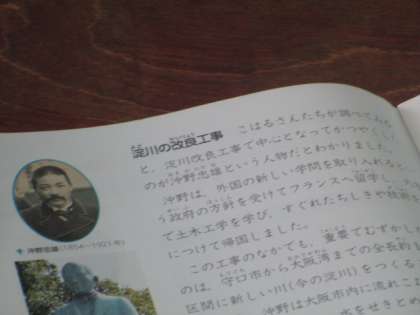 淀川の改良工事 こはるさんたちが調べてみる
と、淀川改良工事で中心となってかつやくした
のが沖野忠雄という人物だとわかりました。
沖野は、外国の新しい学問を取り入れると
う政府の方針を受けてフランスへ留学し
て土木工学を学び、すぐれたちしきや技術を
につけて帰国しました。
この工事のなかでも、重要でむずかし
のは、守口市から大阪湾までの全長約
区間に新しい川(今の淀川)をつくる
沖野は大阪市内に流れこ
をせきと
沖野忠雄(1854〜1921年)